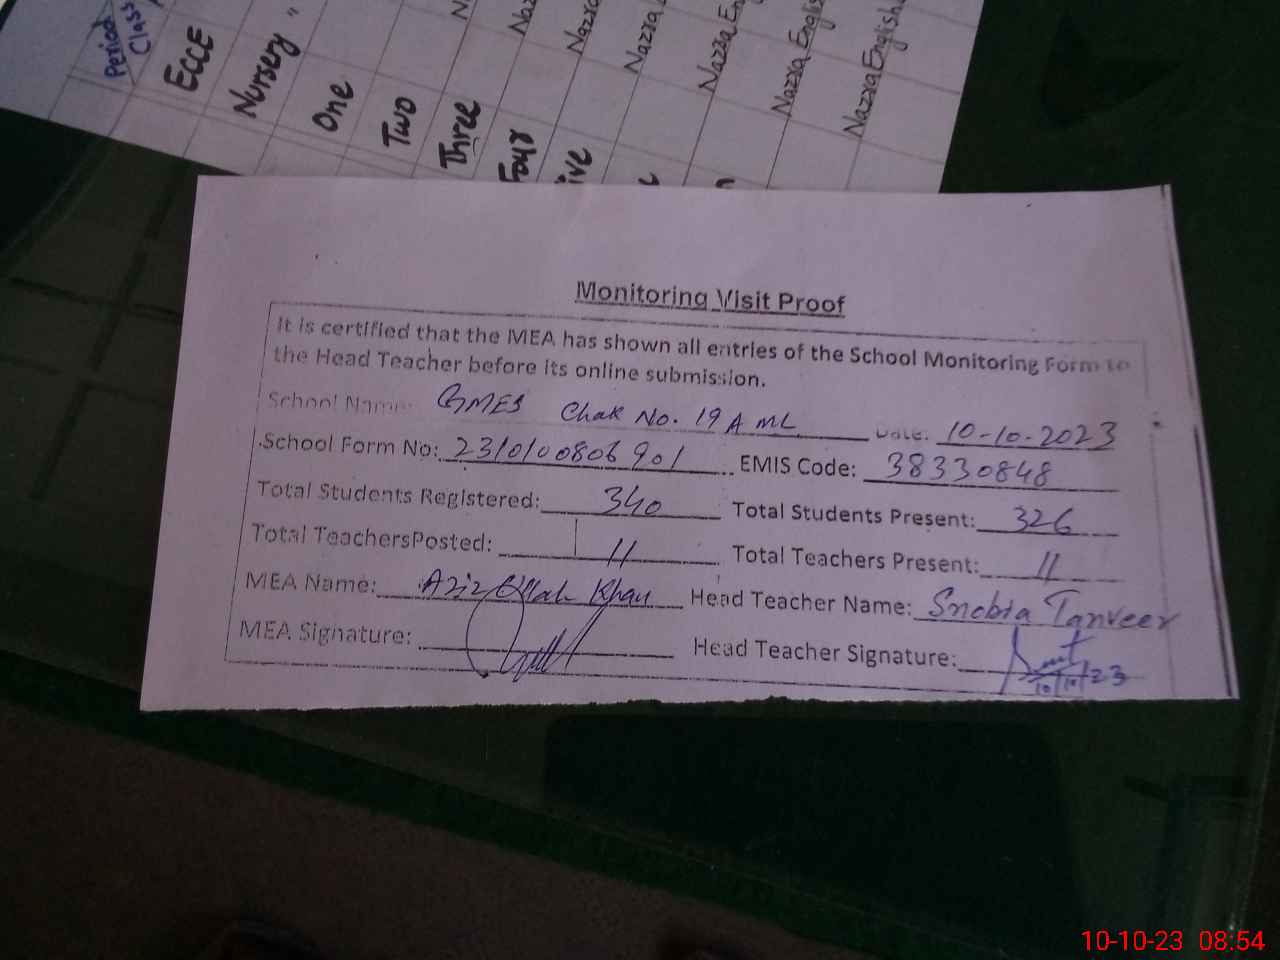 Period
Class
ECCE
Nursery "
One
Two
Three
Four
ive
Nazra En
Nazra English
Nazra English
Monitoring Visit Proof
It is certified that the MEA has shown all entries of the School Monitoring Form to
the Head Teacher before its online submission.
School Name: GMES Chak No. 19 A ML Date: 10-10-2023
School Form No: 2310100806901 EMIS Code: 38330848
Total Students Registered: 340 Total Students Present: 326
Total TeachersPosted: 11 Total Teachers Present: 11
MEA Name: Aziz Ullah Khan Head Teacher Name: Snobia Tanveer
MEA Signature: Head Teacher Signature:
10/10/23
10-10-23 08:54